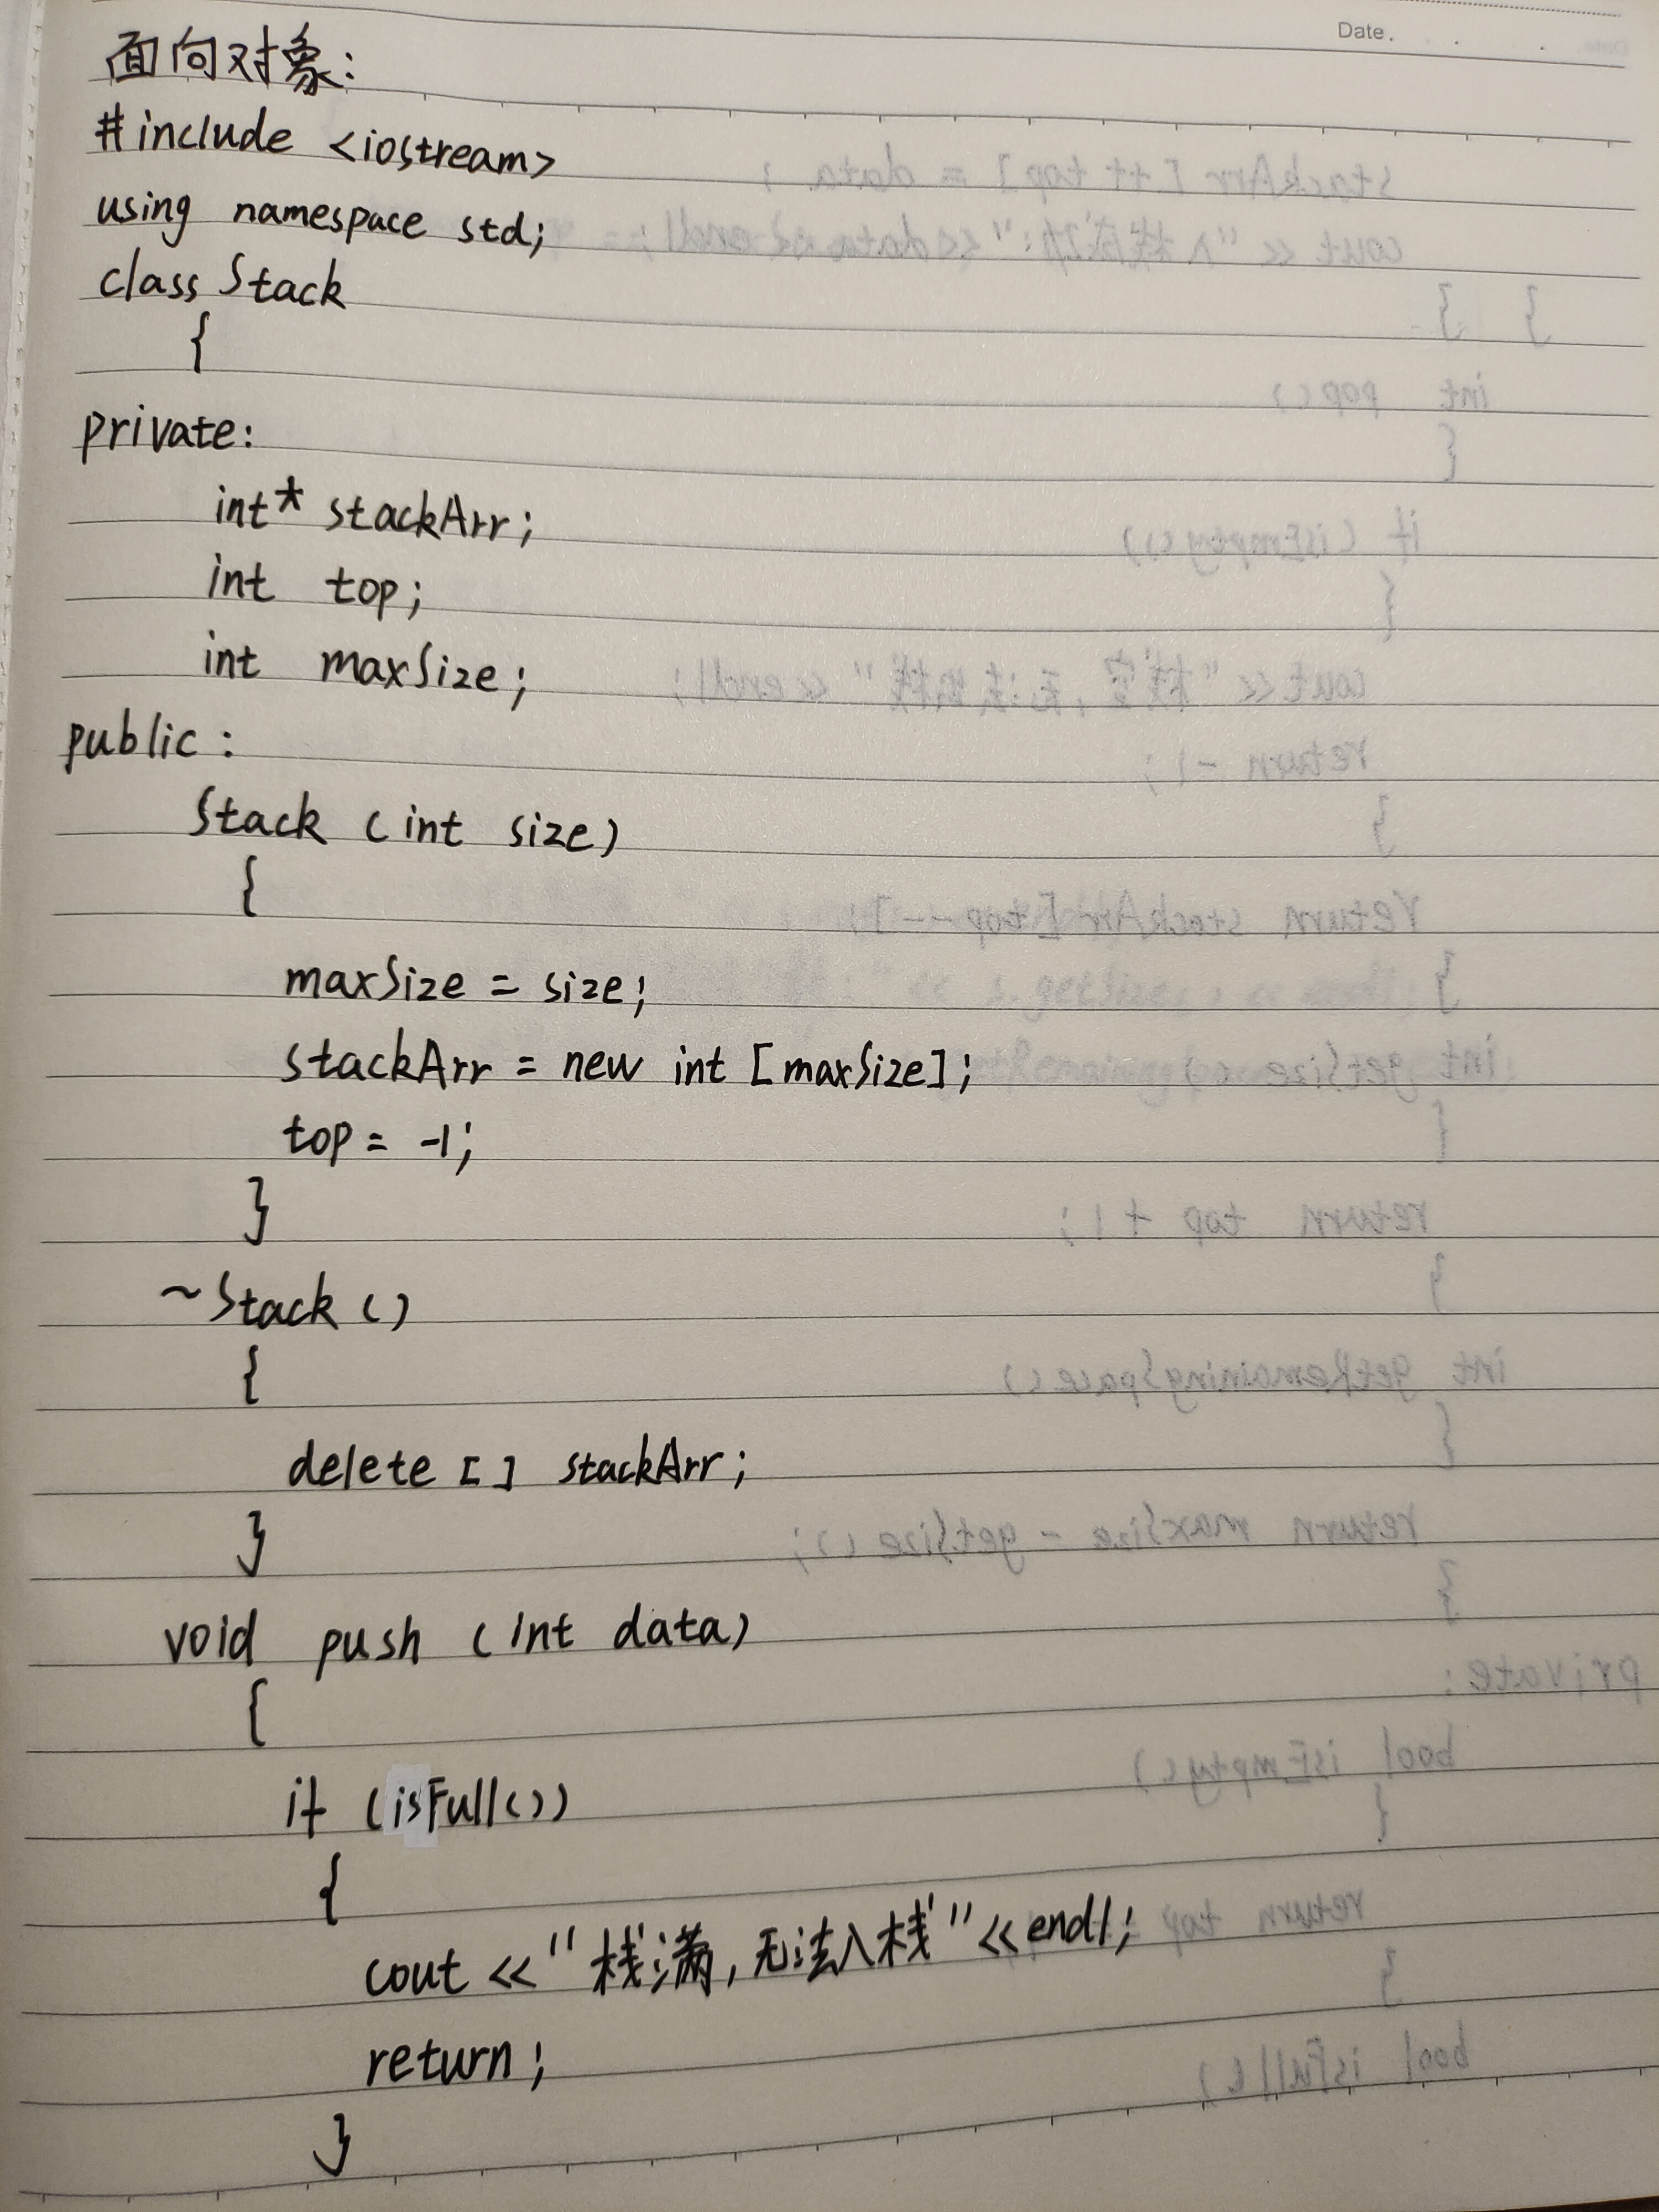 Date.
面向对象:
#include <iostream>
using namespace std;
class Stack
{
private:
int* stackArr;
int top;
int maxSize;
public:
Stack (int size)
{
maxSize = size;
stackArr = new int [maxSize];
top = -1;
}
~Stack ()
{
delete [] stackArr;
}
void push (int data)
{
if (isFull())
{
cout << "栈满,无法入栈" << endl;
return;
}